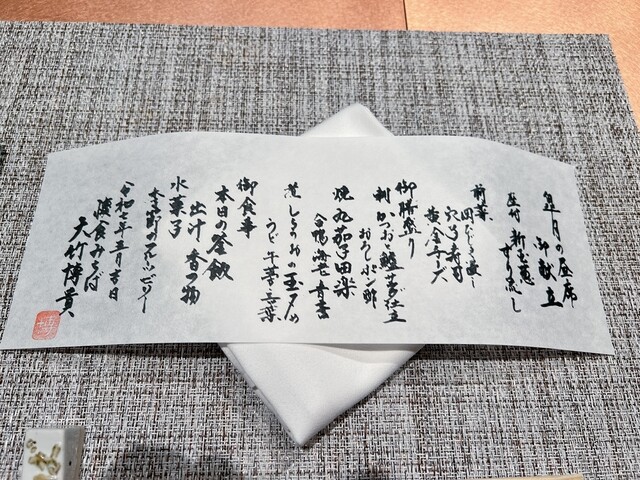 皐月の昼席
御献立
座付 新玉葱
すり流し
前菜
穴子寿司
黄金チーズ
御膳盛り
刺 かつお 鱧 芥仕立
おろしポン酢
焼 丸茄子田楽
合鴨 海老 青唐
蒸 しらうおの玉〆め
うど 牛蒡 三つ葉
御食事
本日の釜飯
出汁 香の物
水菓子
季節のフルーツゼリー
令和七年五月吉日
大竹博貴